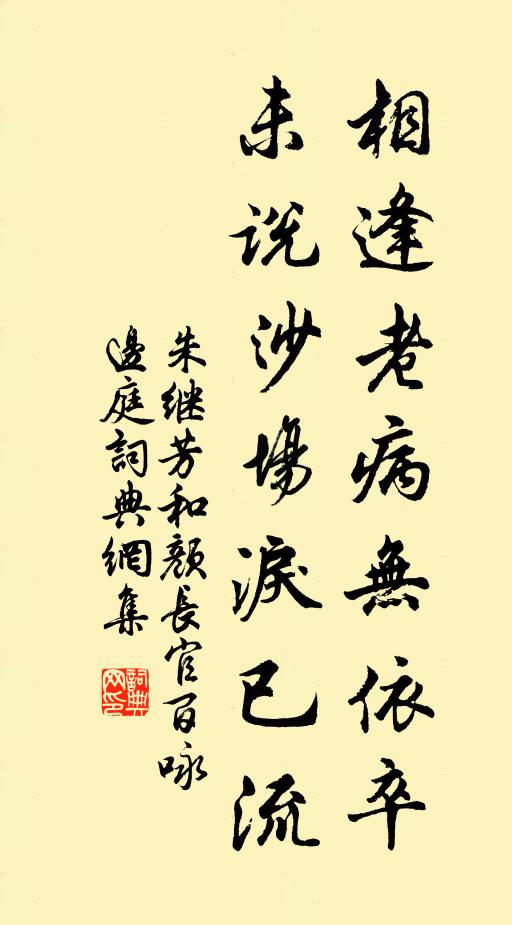 相逢老病無依卒
未説沙場淚已流
朱继芳和顔長官百咏
邊庭詞典網集
詞典
网印